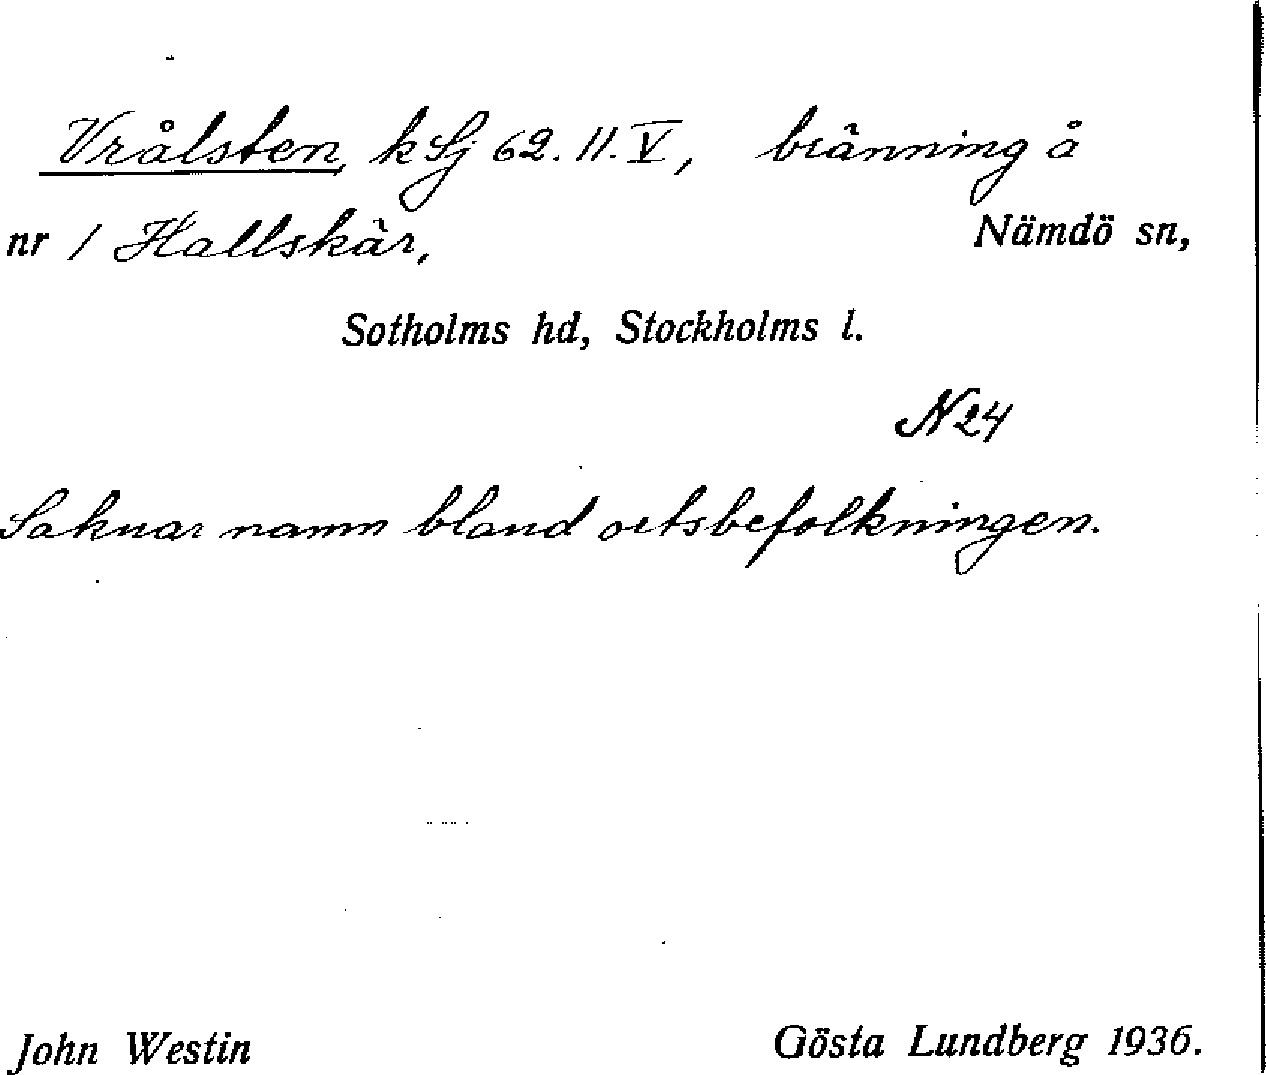 Vrålsten, k Sj 62. 11. V, bränning å
nr 1 Hallskär, Nämdö sn,
Sotholms hd, Stockholms l.
N 24
Saknar namn bland ortsbefolkningen.
John Westin Gösta Lundberg 1936.